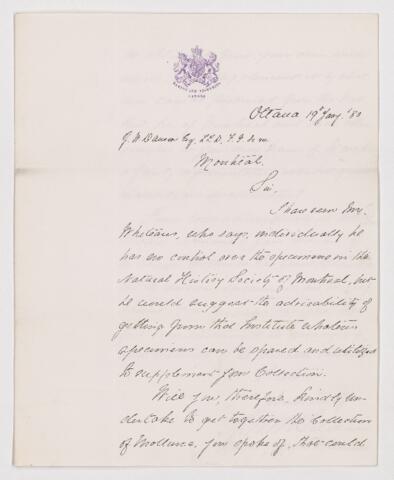 Ottawa 19th Jany '80
J. W. Dawson Esq. LL.D. F.
Montreal.
Sir,
I have seen Mr.
Whiteaves, who says, individually he
has no control over the specimens in the
Natural History Society of Montreal, but
he would suggest the advisability of
getting from that Institute whatever
specimens can be spared and utilized
to supplement your Collection.
Will you, therefore, kindly un-
dertake to get together the Collection
of Mollusca, you spoke of, that could